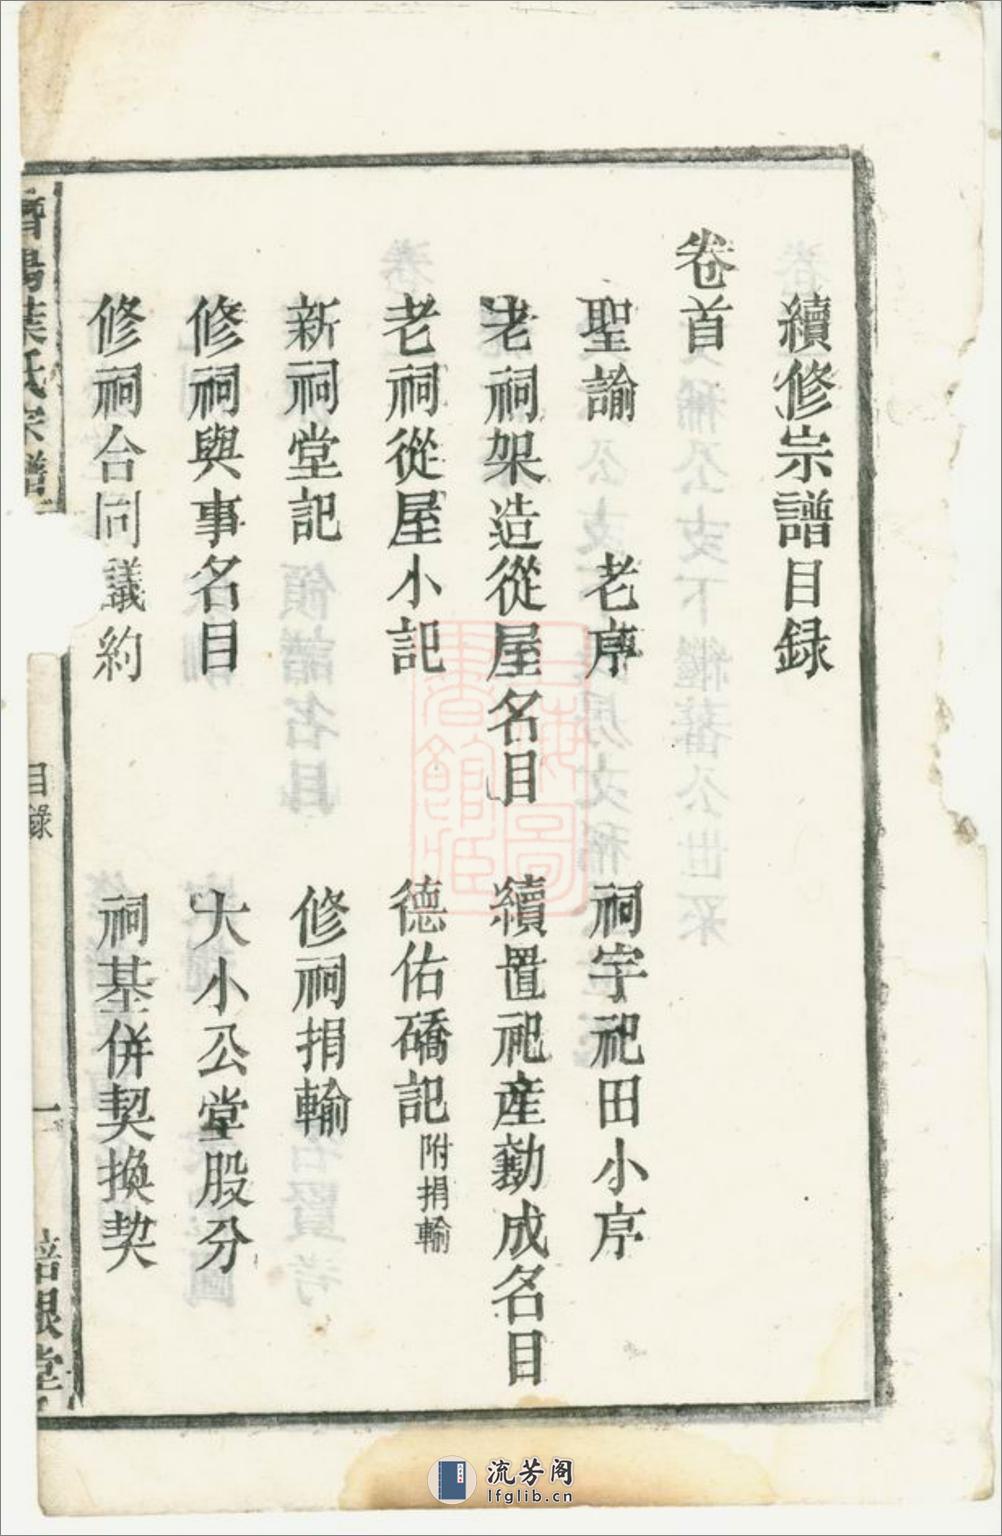 續修宗譜目録
卷首
聖諭 老序 祠宇祀田小序
老祠架造從屋名目 續置祀産勷成名目
老祠從屋小記 德佑碢記 附捐輸
新祠堂記 修祠捐輸
修祠與事名目 大小公堂股分
修祠合同議約 祠基併契換契
濟陽葉氏宗譜 目錄 一 培根堂
流芳阁
lfglib.cn